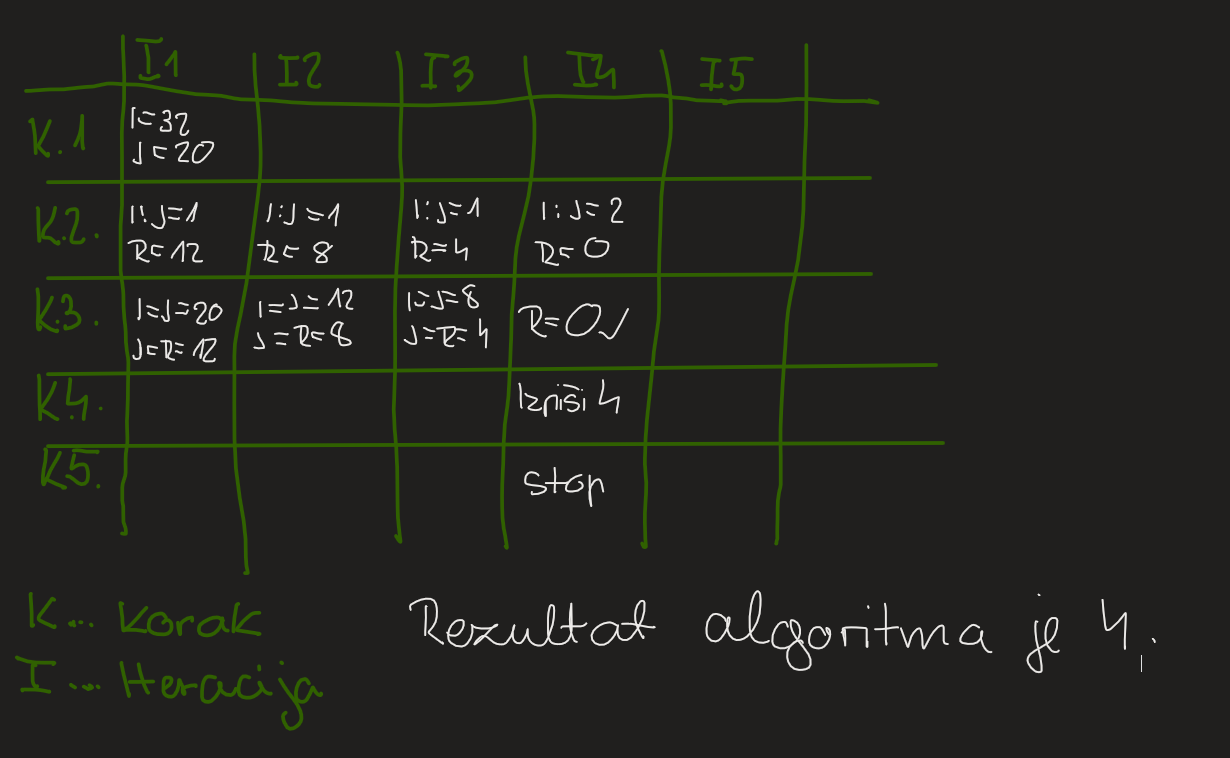 I1 I2 I3 I4 I5
K.1 I=32
J=20
K2. I:J=1 I:J=1 I:J=1 I:J=2
R=12 R=8 R=4 R=0
K3. I=J=20 I=J=12 I=J=8 R=0✓
J=R=12 J=R=8 J=R=4
K4. Izpiši 4
K5. stop
K... korak
I... Iteracija
Rezultat algoritma je 4.